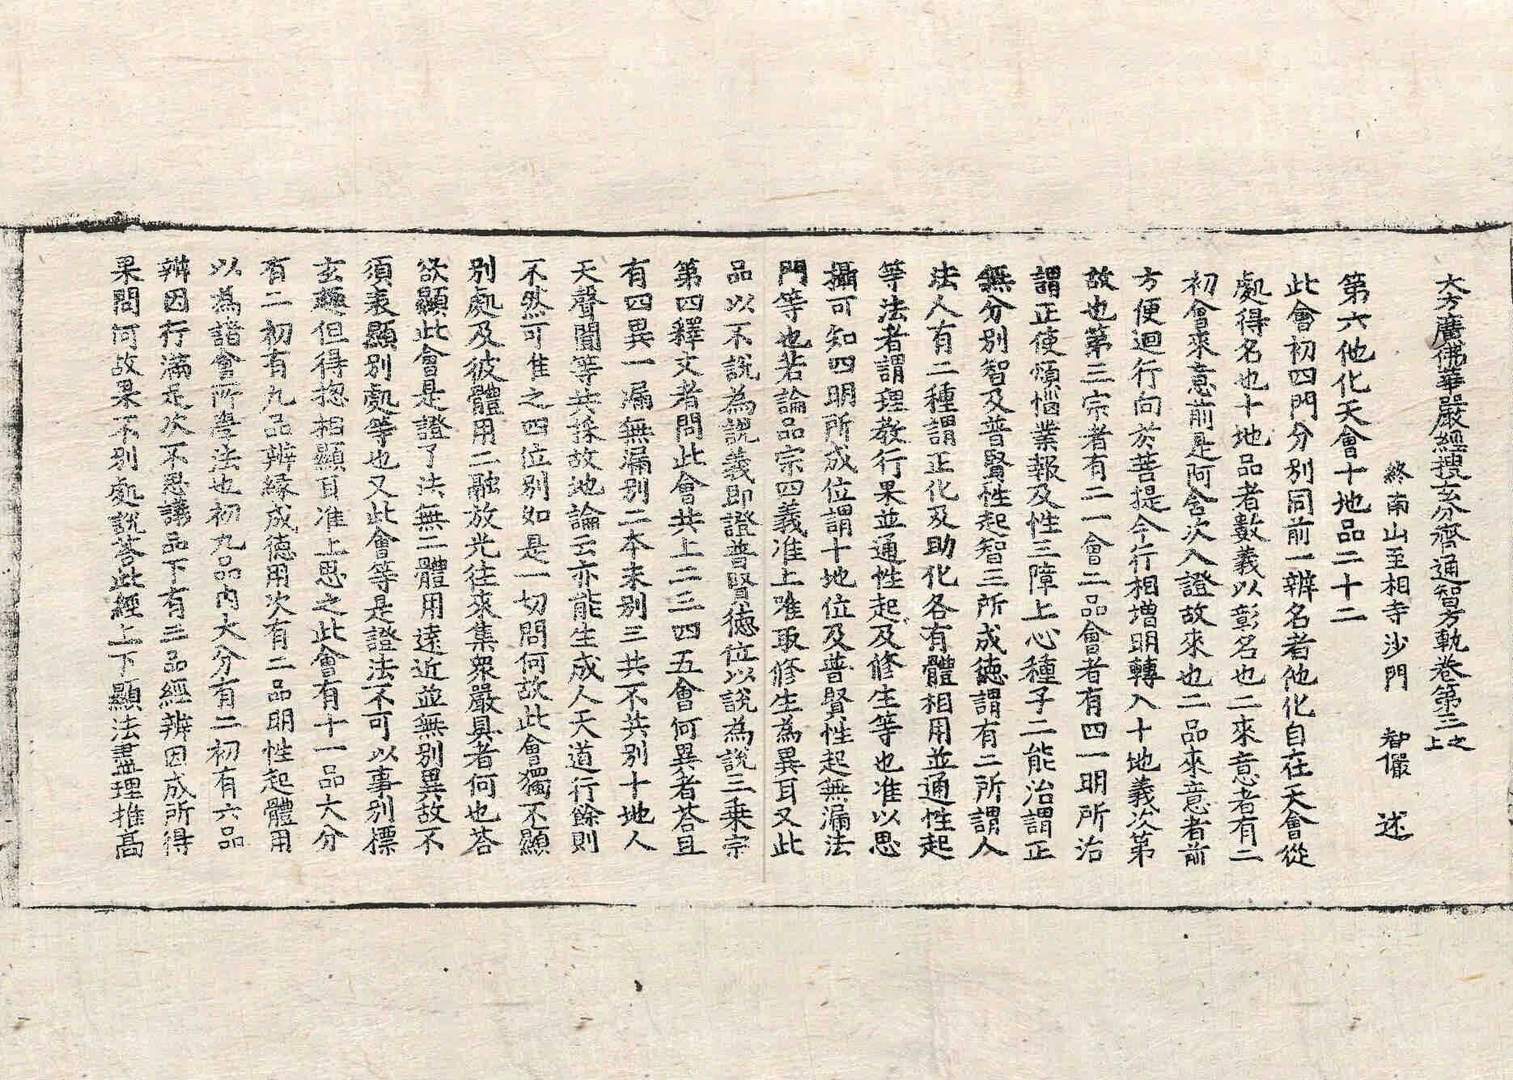 大方廣佛華嚴經搜玄分齊通智方軌卷第三之上
終南山至相寺沙門 智儼 述
第六他化天會十地品二十二
此會初四門分別同前一辨名者他化自在天會從
處得名也十地品者數義以彰名也二來意者有二
初會來意前是阿含次入證故來也二品來意者前
方便迴行向於菩提今行相增明轉入十地義次第
故也第三宗者有二一會二品會者有四一明所治
謂正使煩惱業報及性三障上心種子二能治謂正
無分別智及普賢性起智三所成德謂有二所謂人
法人有二種謂正化及助化各有體相用並通性起
等法者謂理教行果並通性起及修生等也准以思
攝可知四明所成位謂十地位及普賢性起無漏法
門等也若論品宗四義准上唯取修生為異耳又此
品以不說為說義即證普賢德位以說為說三乘宗
第四釋文者問此會共上二三四五會何異者荅且
有四異一漏無漏別二本末別三共不共別十地人
天聲聞等共採故地論云亦能生成人天道行餘則
不然可准之四位別如是一切問何故此會獨不顯
別處及彼體用二融放光往來集眾嚴具者何也荅
欲顯此會是證了法無二體用遠近並無別異故不
須表顯別處等也又此會等是證法不可以事別標
玄趣但得揔相顯耳准上思之此會有十一品大分
有二初有九品辨緣成德用次有二品明性起體用
以為諸會所學法也初九品內大分有二初有六品
辨因行滿足次不思議品下有三品經辨因成所得
果問何故果不別處說荅此經上下顯法盡理推高